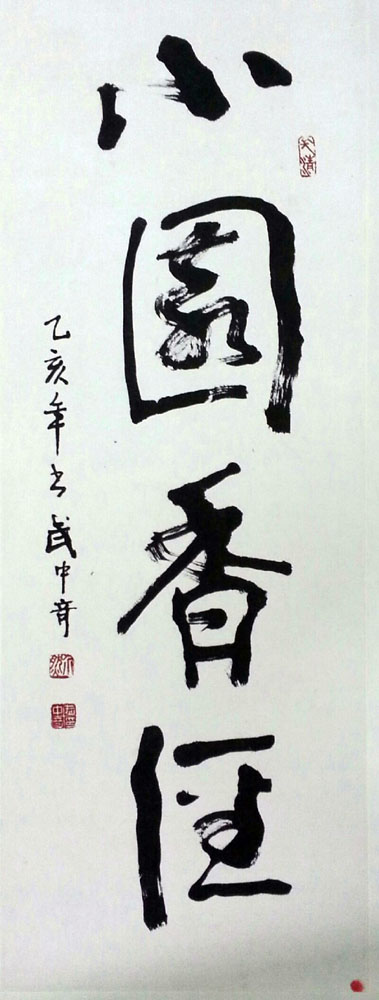 小園香徑
乙亥年書武中奇